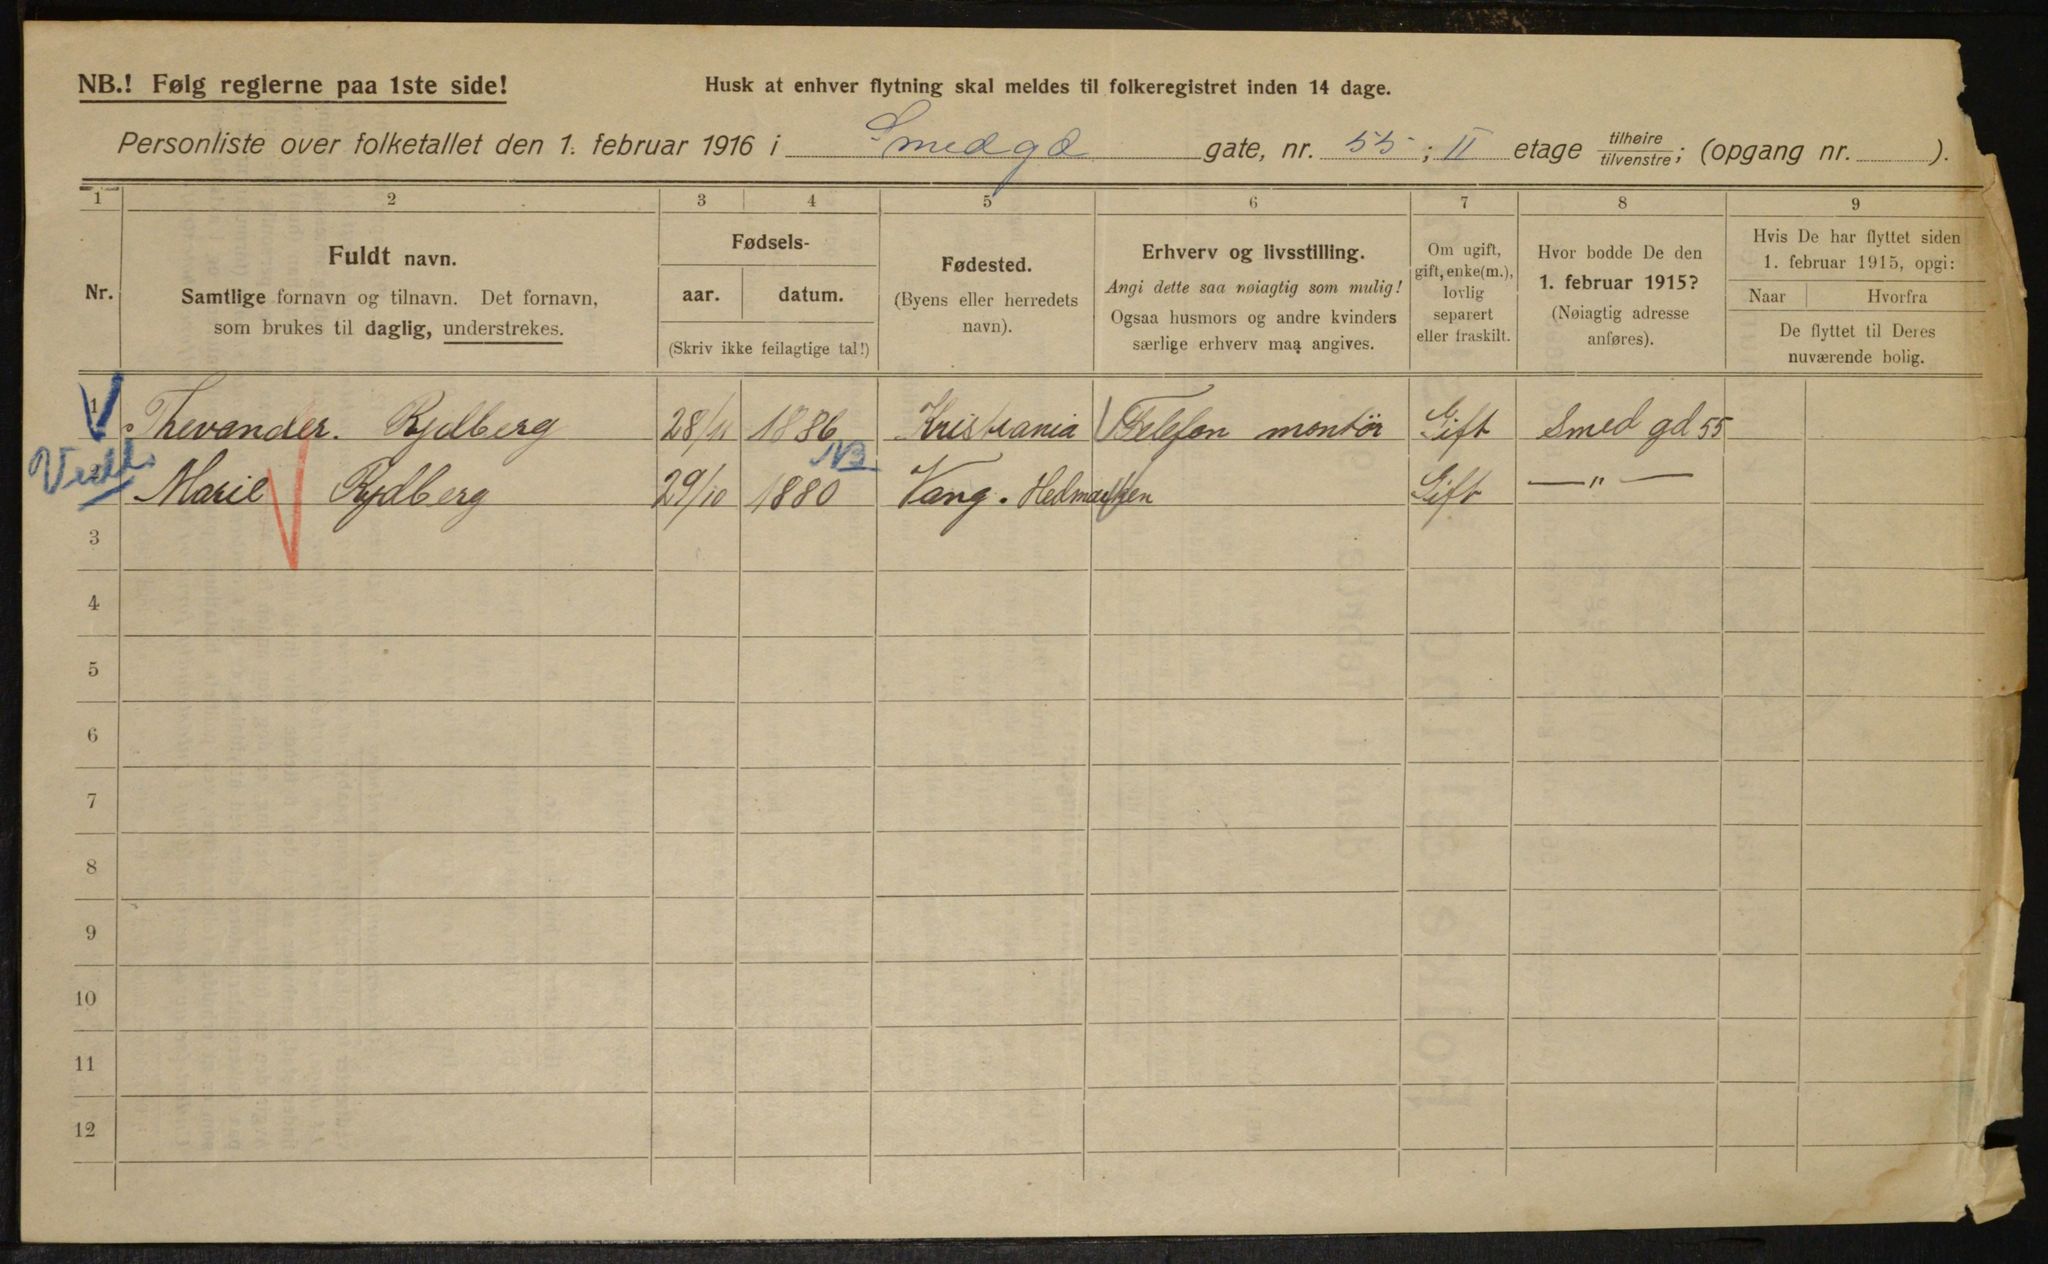 NB.! Følg reglerne paa 1ste side!
Husk at enhver flytning skal meldes til folkeregistret inden 14 dage.
Personliste over folketallet den 1. februar 1916 i Smedgd gate, nr. 55 ; II etage tilhøire/tilvenstre; (opgang nr. ).
1 2 3 4 5 6 7 8 9
Nr.
Fuldt navn.
Samtlige fornavn og tilnavn. Det fornavn,
som brukes til daglig, understrekes.
Fødsels-
aar. datum.
(Skriv ikke feilagtige tal!)
Fødested.
(Byens eller herredets
navn).
Erhverv og livsstilling.
Angi dette saa nøiagtig som mulig!
Ogsaa husmors og andre kvinders
særlige erhverv maa angives.
Om ugift,
gift, enke(m.),
lovlig
separert
eller fraskilt.
Hvor bodde De den
1. februar 1915?
(Nøiagtig adresse
anføres).
Hvis De har flyttet siden
1. februar 1915, opgi:
Naar Hvorfra
De flyttet til Deres
nuværende bolig.
1 Thevander. Rydberg 28/11 1886 Kristiania Telefon montör Gift Smed gd 55
NB
Marie Rydberg 29/10 1880 Vang. Hedmarken Gift — " —
3
4
5
6
7
8
9
10
11
12